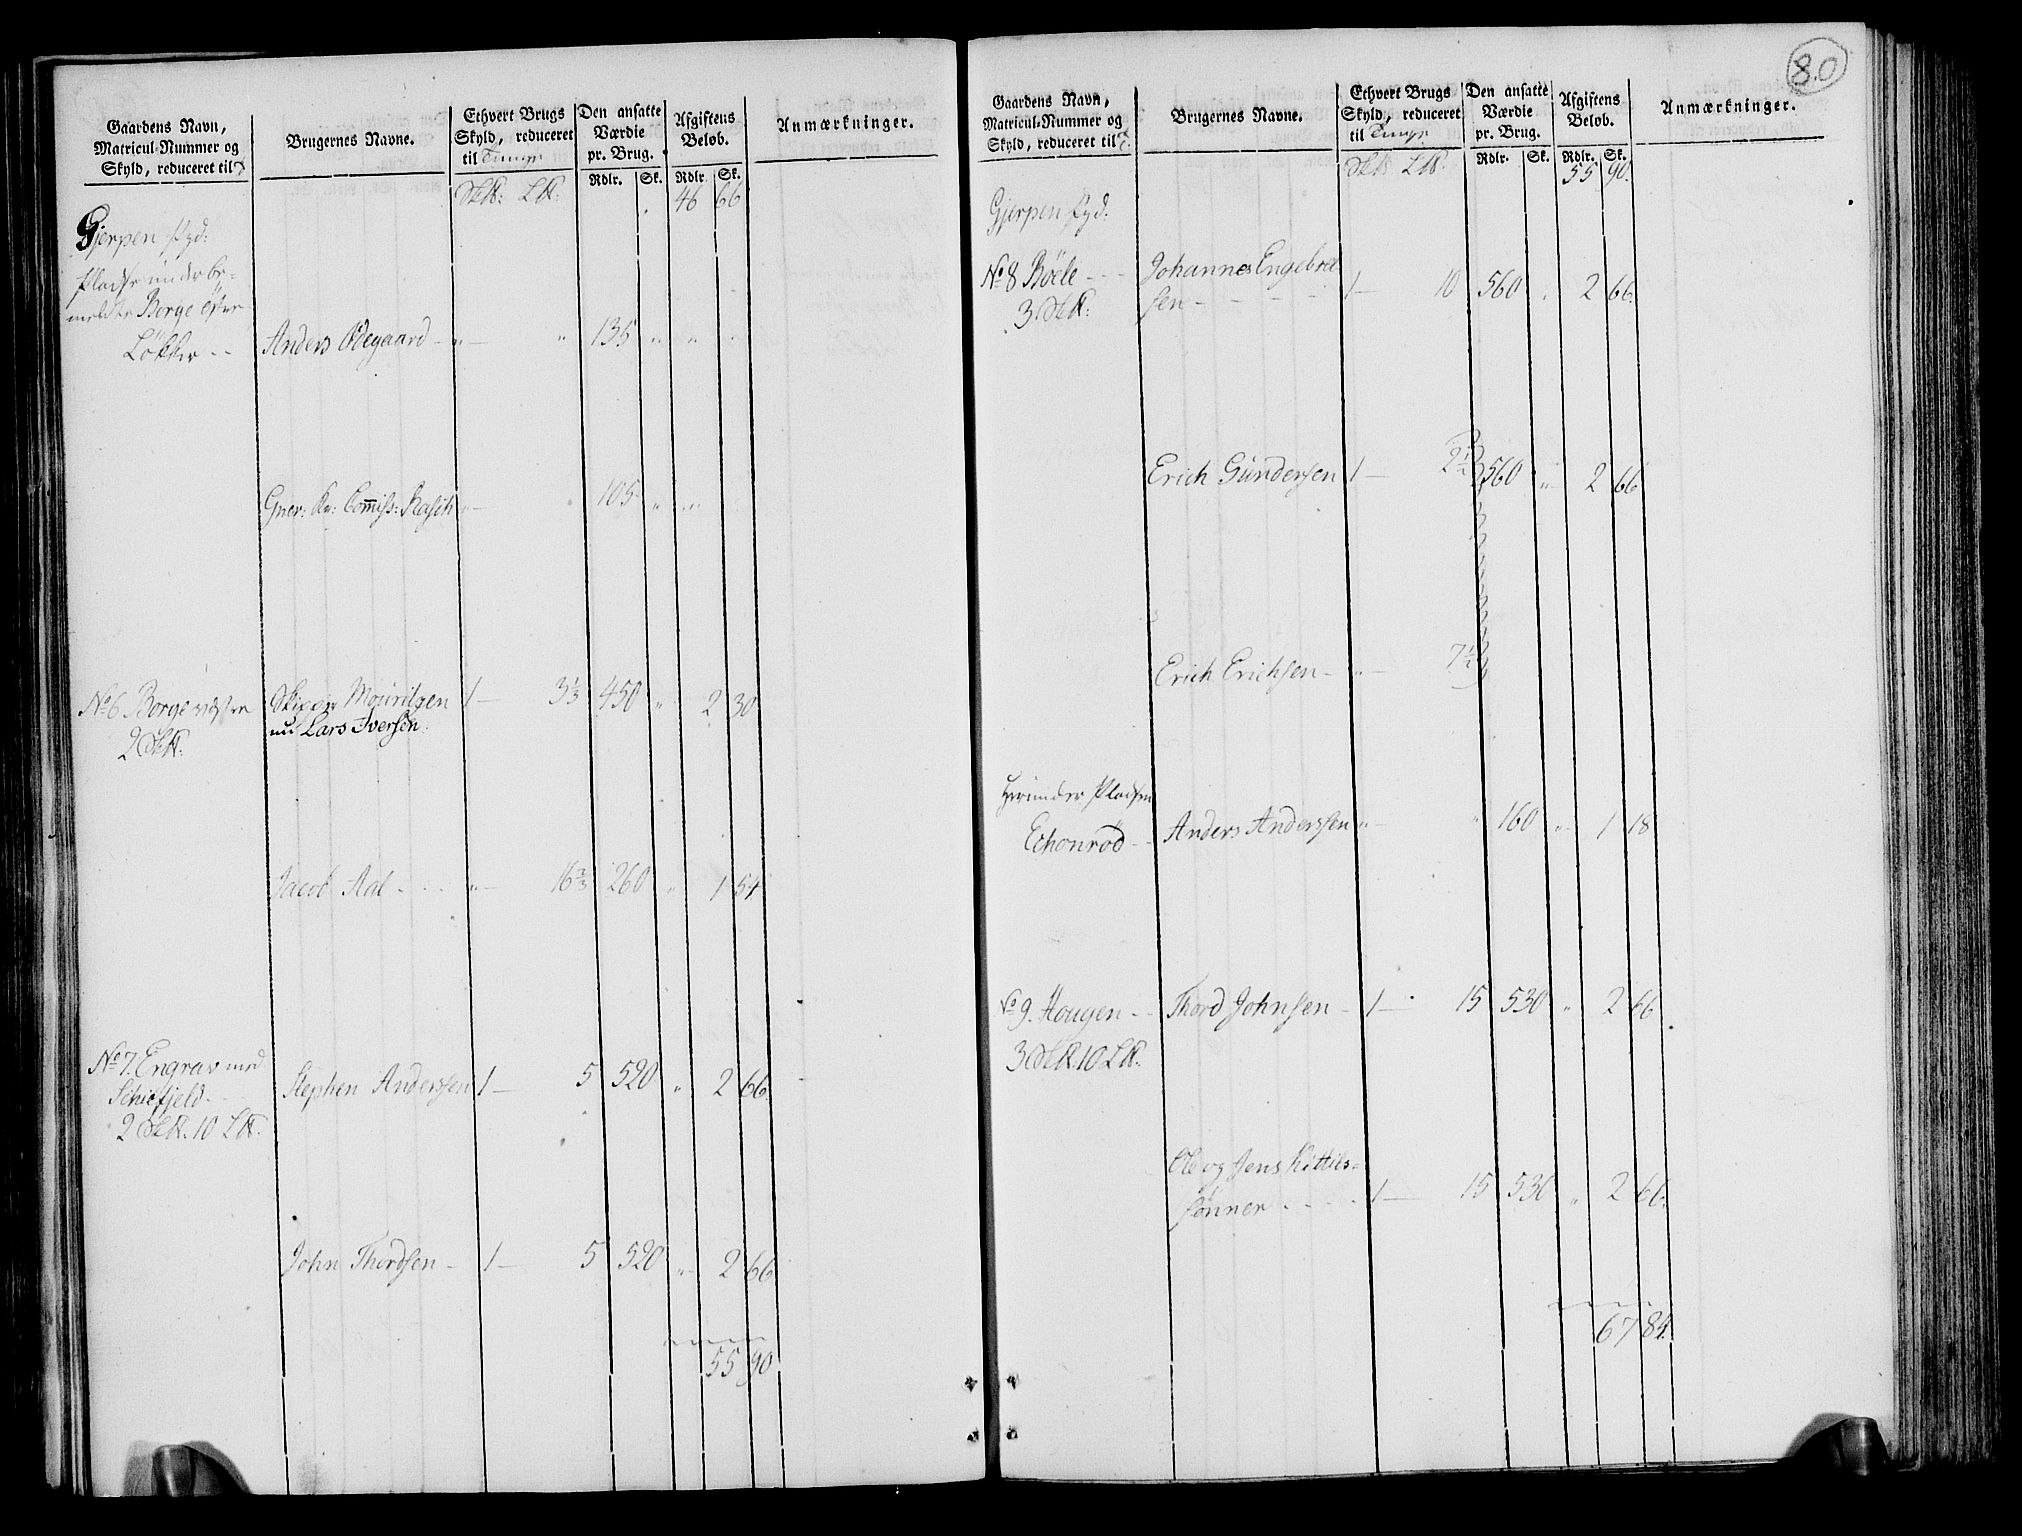 Gaardens Navn,
Matricul-Nummer og
Skyld, reduceret til
Brugernes Navne.
Ethvert Brugs
Skyld, reduceret
til Tunge
Den ansatte
Værdie
pr. Brug.
Afgiftens
Beløb.
Anmærkninger.
Rdlr. Sk. Rdlr. Sk.
46 66
Gjerpen
Pladse under be-
meldte Borge østre
Løkker -- Anders Ødegaard - " — " 135 " "
Gner: Kr: Commiss: Rasch " — 105 "
No 6 Borge vestre Skipper Mouritzen 1 — 3 1/3 450 " 2 30
2 nu Lars Iversen.
Jacob Aal - - - " — 16 2/3 260 " 1 54
No 7. Engrav med
Schiefjeld - Stephen Anderssen 1 — 5 520 " 2 66
2 10
John Thordsen - 1 — 5 520 " 2 66
55 90
80
Gaardens Navn,
Matricul-Nummer og
Skyld, reduceret til
Brugernes Navne.
Ethvert Brugs
Skyld, reduceret
til Tunge
Den ansatte
Værdie
pr. Brug.
Afgiftens
Beløb.
Anmærkninger.
Rdlr. Sk. Rdlr. Sk.
55 90.
Gjerpen
No 8 Bøele - - - Johannes Engebret
3 sen - - - - 1 — 10 560 2 66.
Erich Gundersen 1 — 2 1/2 560 " 2 66
Erich Erichsen - " — 7 1/2
Herunder Pladsen
Echonrød - - Anders Anderssen " — " 160 " 1 18
No 9. Hougen - - Thord Johnsen - 1 — 15 530 " 2 66
3 10
Ole og Jens Kittils-
sønner - - - - 1 — 15 530 " 2 66.
67 84.